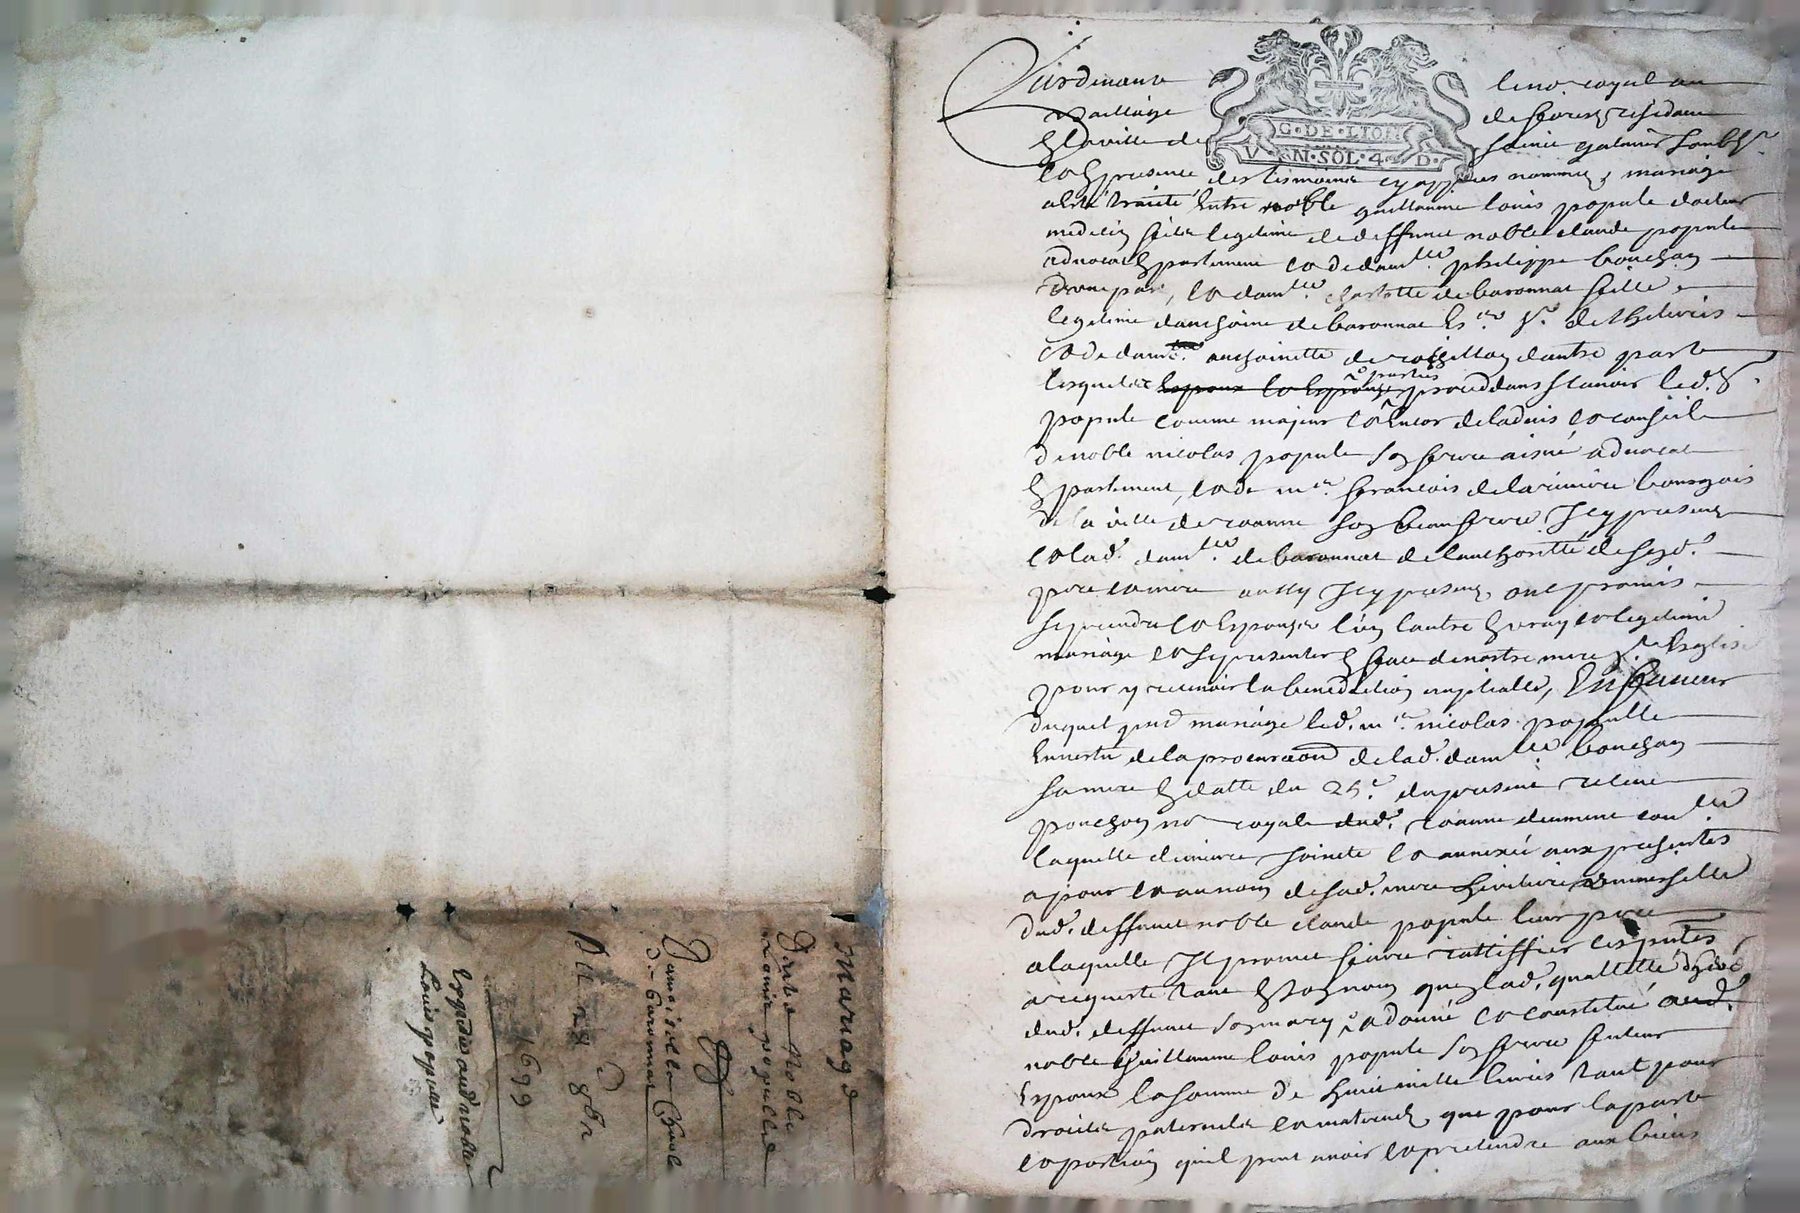 Pardevant le no.re royal au
bailliage de forest residant
En la ville de Sainct galmier soubs.né
G·DE·LION
V·N·SOL·4·D·
Et En presence des tesmoins cy appres nommes, mariage
a esté traicté Entre noble guillaume louis popule docteur
medecin fils legitime de deffunct noble claude popule
advocat En parlement et de dam.lle philippe bouchan
d'une part, et dam.lle charlotte de baronnat fille
legitime d'anthoine de baronnat Es.er S.r de
et de dam.lle anthoinette de d'autre part
lesquelles parties procedans scavoir led. S.r
popule comme majeur et Encor de l'advis et conseil
de noble nicolas popule son frere aisné advocat
En parlement, et de m.re francois de la riviere bourgois
de la ville de roanne son beau frere Icy presens
et lad. dam.lle de baronnat de l'authoritté de sesd.
pere et mere aussy Icy presens, ont promis
se prendre et Espouser l'un l'autre En vray et legitime
mariage et se presenter En face de nostre mere S.te Esglise
pour y recevoir la benediction nuptialle, En faveur
duquel pnt mariage led. m.re nicolas populle
En vertu de la procuraôn de lad. dam.lle bouchan
sa mere En datte du 25.e du present receue
ponchon no.re royal dud. roanne deument con.llee
laquelle demeure joincte et annexée aux presentes
a pour et au nom de sad. mere heritiere universelle
dud. deffunct noble claude popule leur pere
a laquelle Il promet faire rattiffier les pntes
a requeste tant En son nom qu'en lad. quallitté d'her.e
dud. deffunct son mary a donné et constitué aud.
noble Guillaume louis popule son frere futeur
Espoux la somme de huict mille livres tant pour
droicts paternels et maternels que pour la part
et portion qu'il peut avoir et pretendre aux biens
mariage
D'entre Noble
popullé
Et
Damoiselle Charl
De Baronnat
Du 9br
1699
Expedié aud. noble
Louis popule